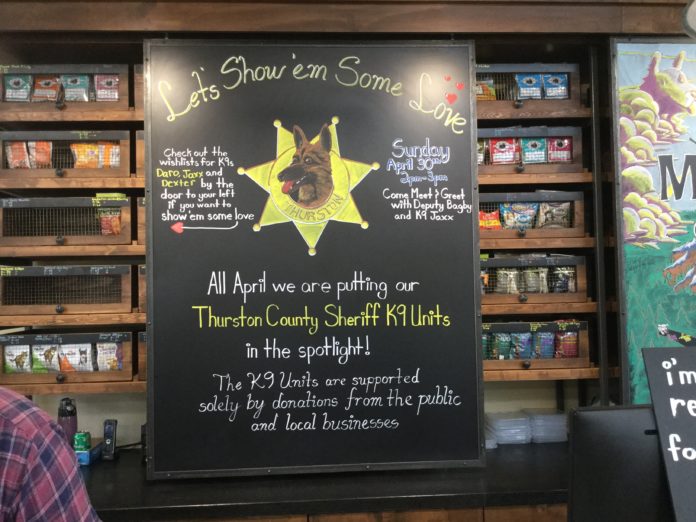 Let's Show 'em Some Love
Check out the
wishlists for K9s
Daro, Jaxx and
Dexter by the
door to your left
if you want to
show 'em some love
THURSTON
Sunday
April 30th
Come Meet & Greet
with Deputy Bagby
and K9 Jaxx
All April we are putting our
Thurston County Sheriff K9 Units
in the spotlight!
The K9 Units are supported
solely by donations from the public
and local businesses
M
i'm
re
fo